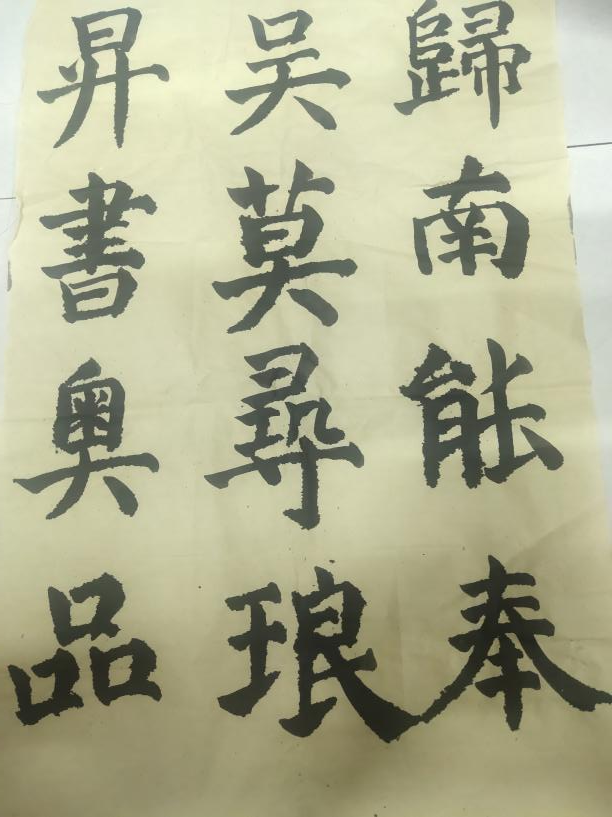 歸南能奉
吴莫尋琅
昇書奥品